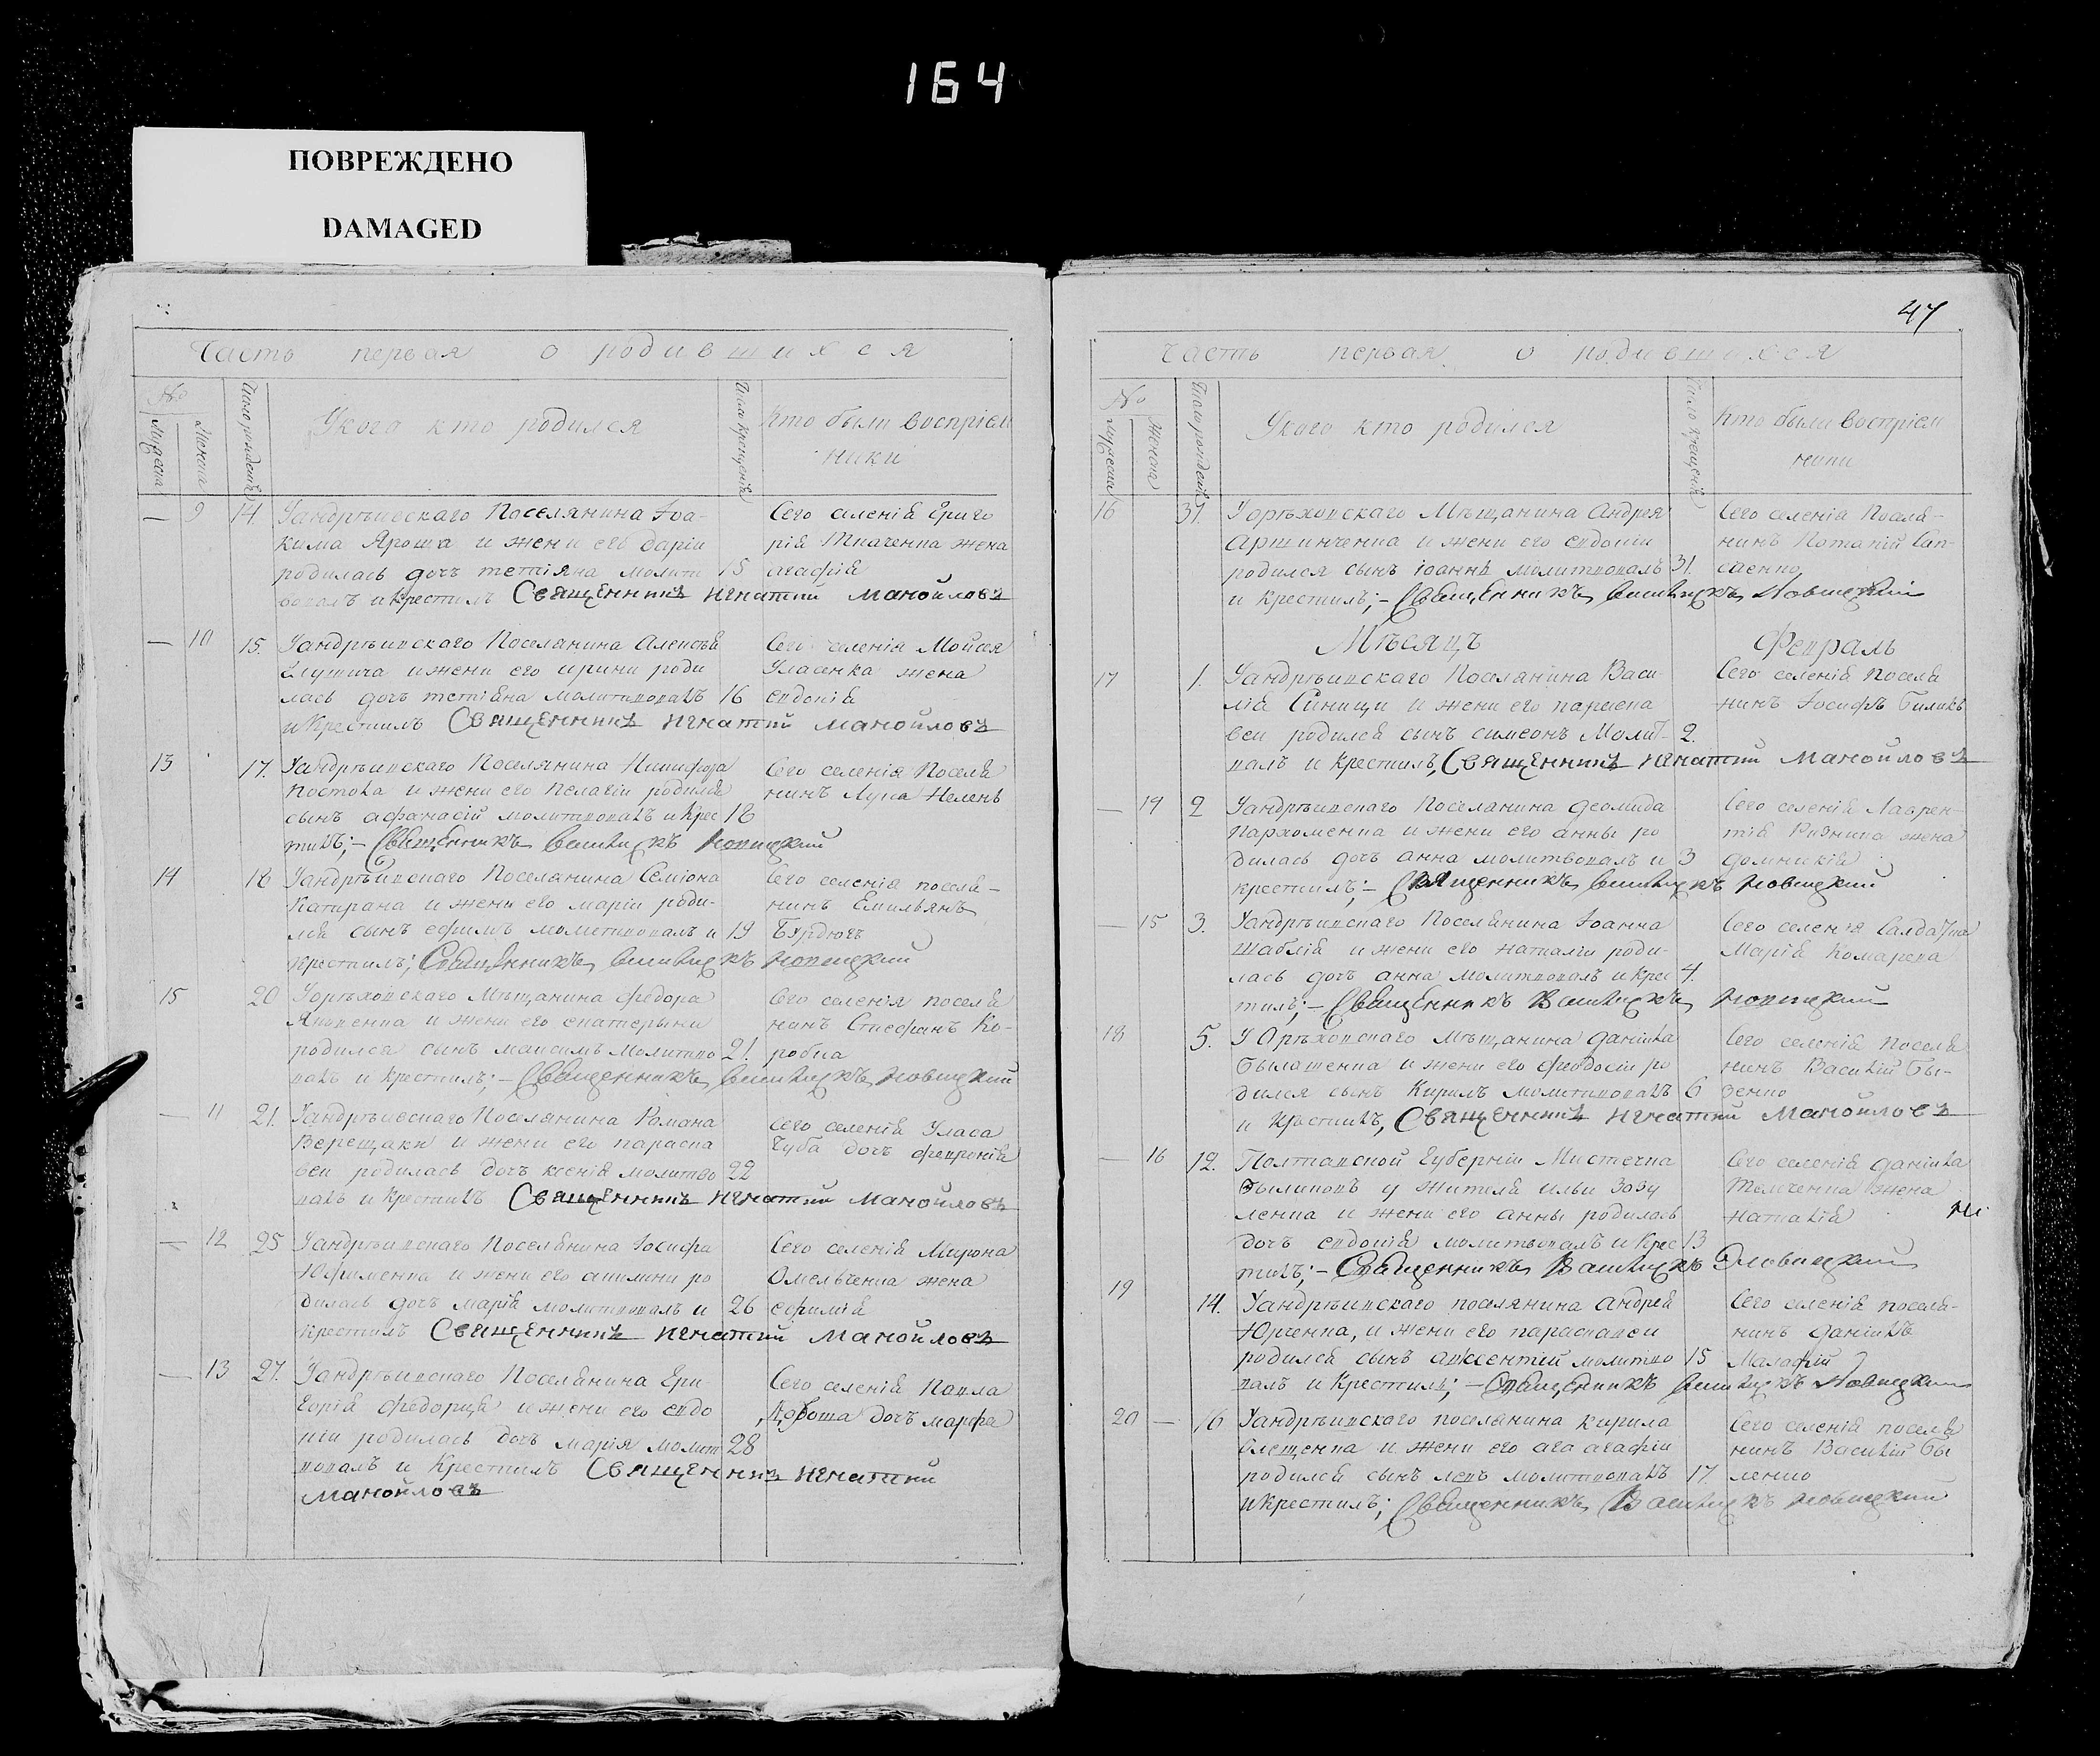 164
ПОВРЕЖДЕНО
DAMAGED
Часть первая о родившихся
№
Мужеска
Женска
Число рожденій
У кого кто родился
Число крещеній
Кто были воспріем
ники
— 9 14. Уандрѣивскаго Поселянина Іоа-
кима Яроша и жени его Даріи
родилась дочь тетіяна молит 15
вовалъ и крестилъ Священникъ Игнатій Манойловъ
Сего селенія Григо
рія Ткаченка жена
агафія
— 10 15. Уандрѣивскаго Поселянина Алексѣя
и жени его ирини роди
лась дочь тетіяна молитвовалъ 16
и Крестилъ Священникъ Игнатій Манойловъ
Сего селенія Мойсея
Уласенка жена
евдокія
13 17. Уандрѣивскаго Поселянина Никифора
Постола и жени его Пелагіи родился
сынъ афанасій молитвовалъ и крес 18
тилъ; – Священникъ Новицкий
Сего селенія Поселя
нинъ Лука
14 18 Уандрѣивскаго Поселянина Семіона
Катирана и жени его маріи роди-
лся сынъ ефимъ молитвовалъ и 19
крестилъ; Священникъ Новицкий
Сего селенія поселя-
нинъ Емильянъ
Бурдюгъ
15 20 Уорѣховскаго Мѣщанина Федора
и жени его екатерыни
родился сынъ максимъ молитво 21.
валъ и крестилъ; – Священникъ Новицкий
Сего селенія поселя
нинъ Стефанъ Ко-
робка
— 11 21. Уандрѣивскаго Поселянина Романа
Верещаки и жени его параска
веи родилась дочь ксенія молитво 22
валъ и крестилъ Священникъ Игнатій Манойловъ
Сего селенія Уласа
Чуба дочь февронія
— 12 25 Уандрѣивскаго Поселянина Іосифа
Юхименка и жени его акилини ро
дилась дочь марія молитвовалъ и 26
крестилъ Священникъ Игнатій Манойловъ
Сего селенія Мирона
Омельченка жена
ефимія
— 13 27. Уандрѣивскаго Поселянина Гри-
горія Федорця и жени его евдо
кіи родилась дочь марія молит 28
вовалъ и Крестилъ Священникъ Игнатій
Манойловъ
Сего селенія Павла
Дороша дочь марфа
47
Часть первая о родившихся
№
Мужеска
Женска
Число рожденій
У кого кто родился
Число крещеній
Кто были воспріем
ники
16 31. Уорѣховскаго Мѣщанина Андрея
Аршинченка и жени его евдокіи
родился сынъ іоаннъ молитвовалъ 31.
и крестилъ; – Священникъ Новицкій
Сего селенія Поселя-
нинъ Потапій Сап-
саенко
Мѣсяцъ Февраль
17 1. Уандрѣивскаго Поселянина Васи-
лія Синици и жени его параска
веи родился сынъ симеонъ Молит- 2.
валъ и крестилъ, Священникъ Игнатій Манойловъ
Сего селенія Поселя
нинъ Іосифъ Биликъ
— 14 2 Уандрѣивскаго Поселянина Деомида
Пархоменка и жени его анны ро
дилась дочь анна молитвовалъ и 3
крестилъ; – Священникъ Новицкий
Сего селенія Лаврен-
тія Резника жена
домникія
— 15 3. Уандрѣивскаго Поселянина Іоанна
Шаблія и жени его наталіи роди-
лась дочь анна молитвовалъ и крес 4.
тилъ; – Священникъ Новицкий
Сего селенія Салдатка
Марія Комарева
18 5. У Орѣховскаго Мѣщанина Даніила
Билашенка и жени его феодосіи ро
дился сынъ Кирилъ молитвовалъ 6
и Крестилъ, Священникъ Игнатій Манойловъ
Сего селенія Поселя
нинъ Василій Би-
зенко
— 16 12. Полтавской Губерніи Мистечка
Биликовъ у жителя ильи Зозу
ленка и жени его анны родилась
дочь евдокія молитвовалъ и крес 13
тилъ; – Священникъ Новицкий
Сего селенія Даніила
Телеченка жена
наталія
19 14. Уандрѣивскаго поселянина андрея
Юрченка, и жени его параскавеи
родился сынъ авксентій молитво 15
валъ и Крестилъ; – Священникъ Новицкий
Сего селенія поселя-
нинъ Даніилъ
Малафій
20 — 16 Уандрѣивскаго поселянина кирила
Олещенка и жени его ага агафіи
родился сынъ левъ молитвовалъ 17.
и крестилъ; Священникъ Новицкий
Сего селенія поселя
нинъ Василій Би
ленко